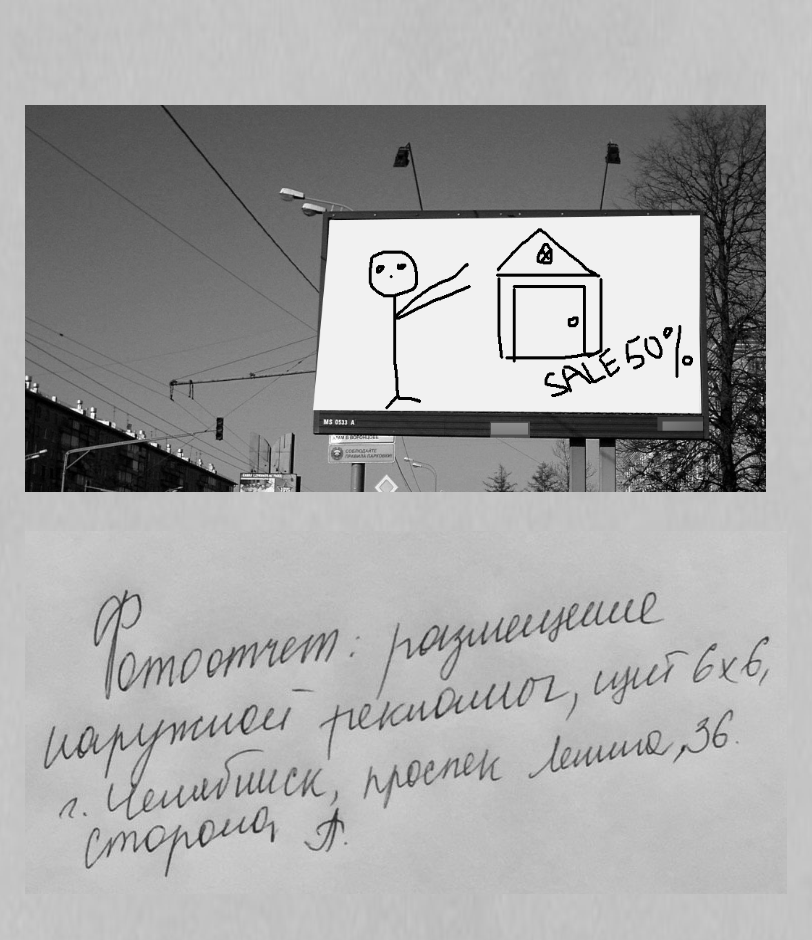 SALE 50%
MS 0533 A
СОБЛЮДАЙТЕ
ПРАВИЛА ПАРКОВКИ
Фотоотчет: размещение
наружной рекламы, щит 6х6,
г. Челябинск, проспек Ленина, 36.
сторона А.